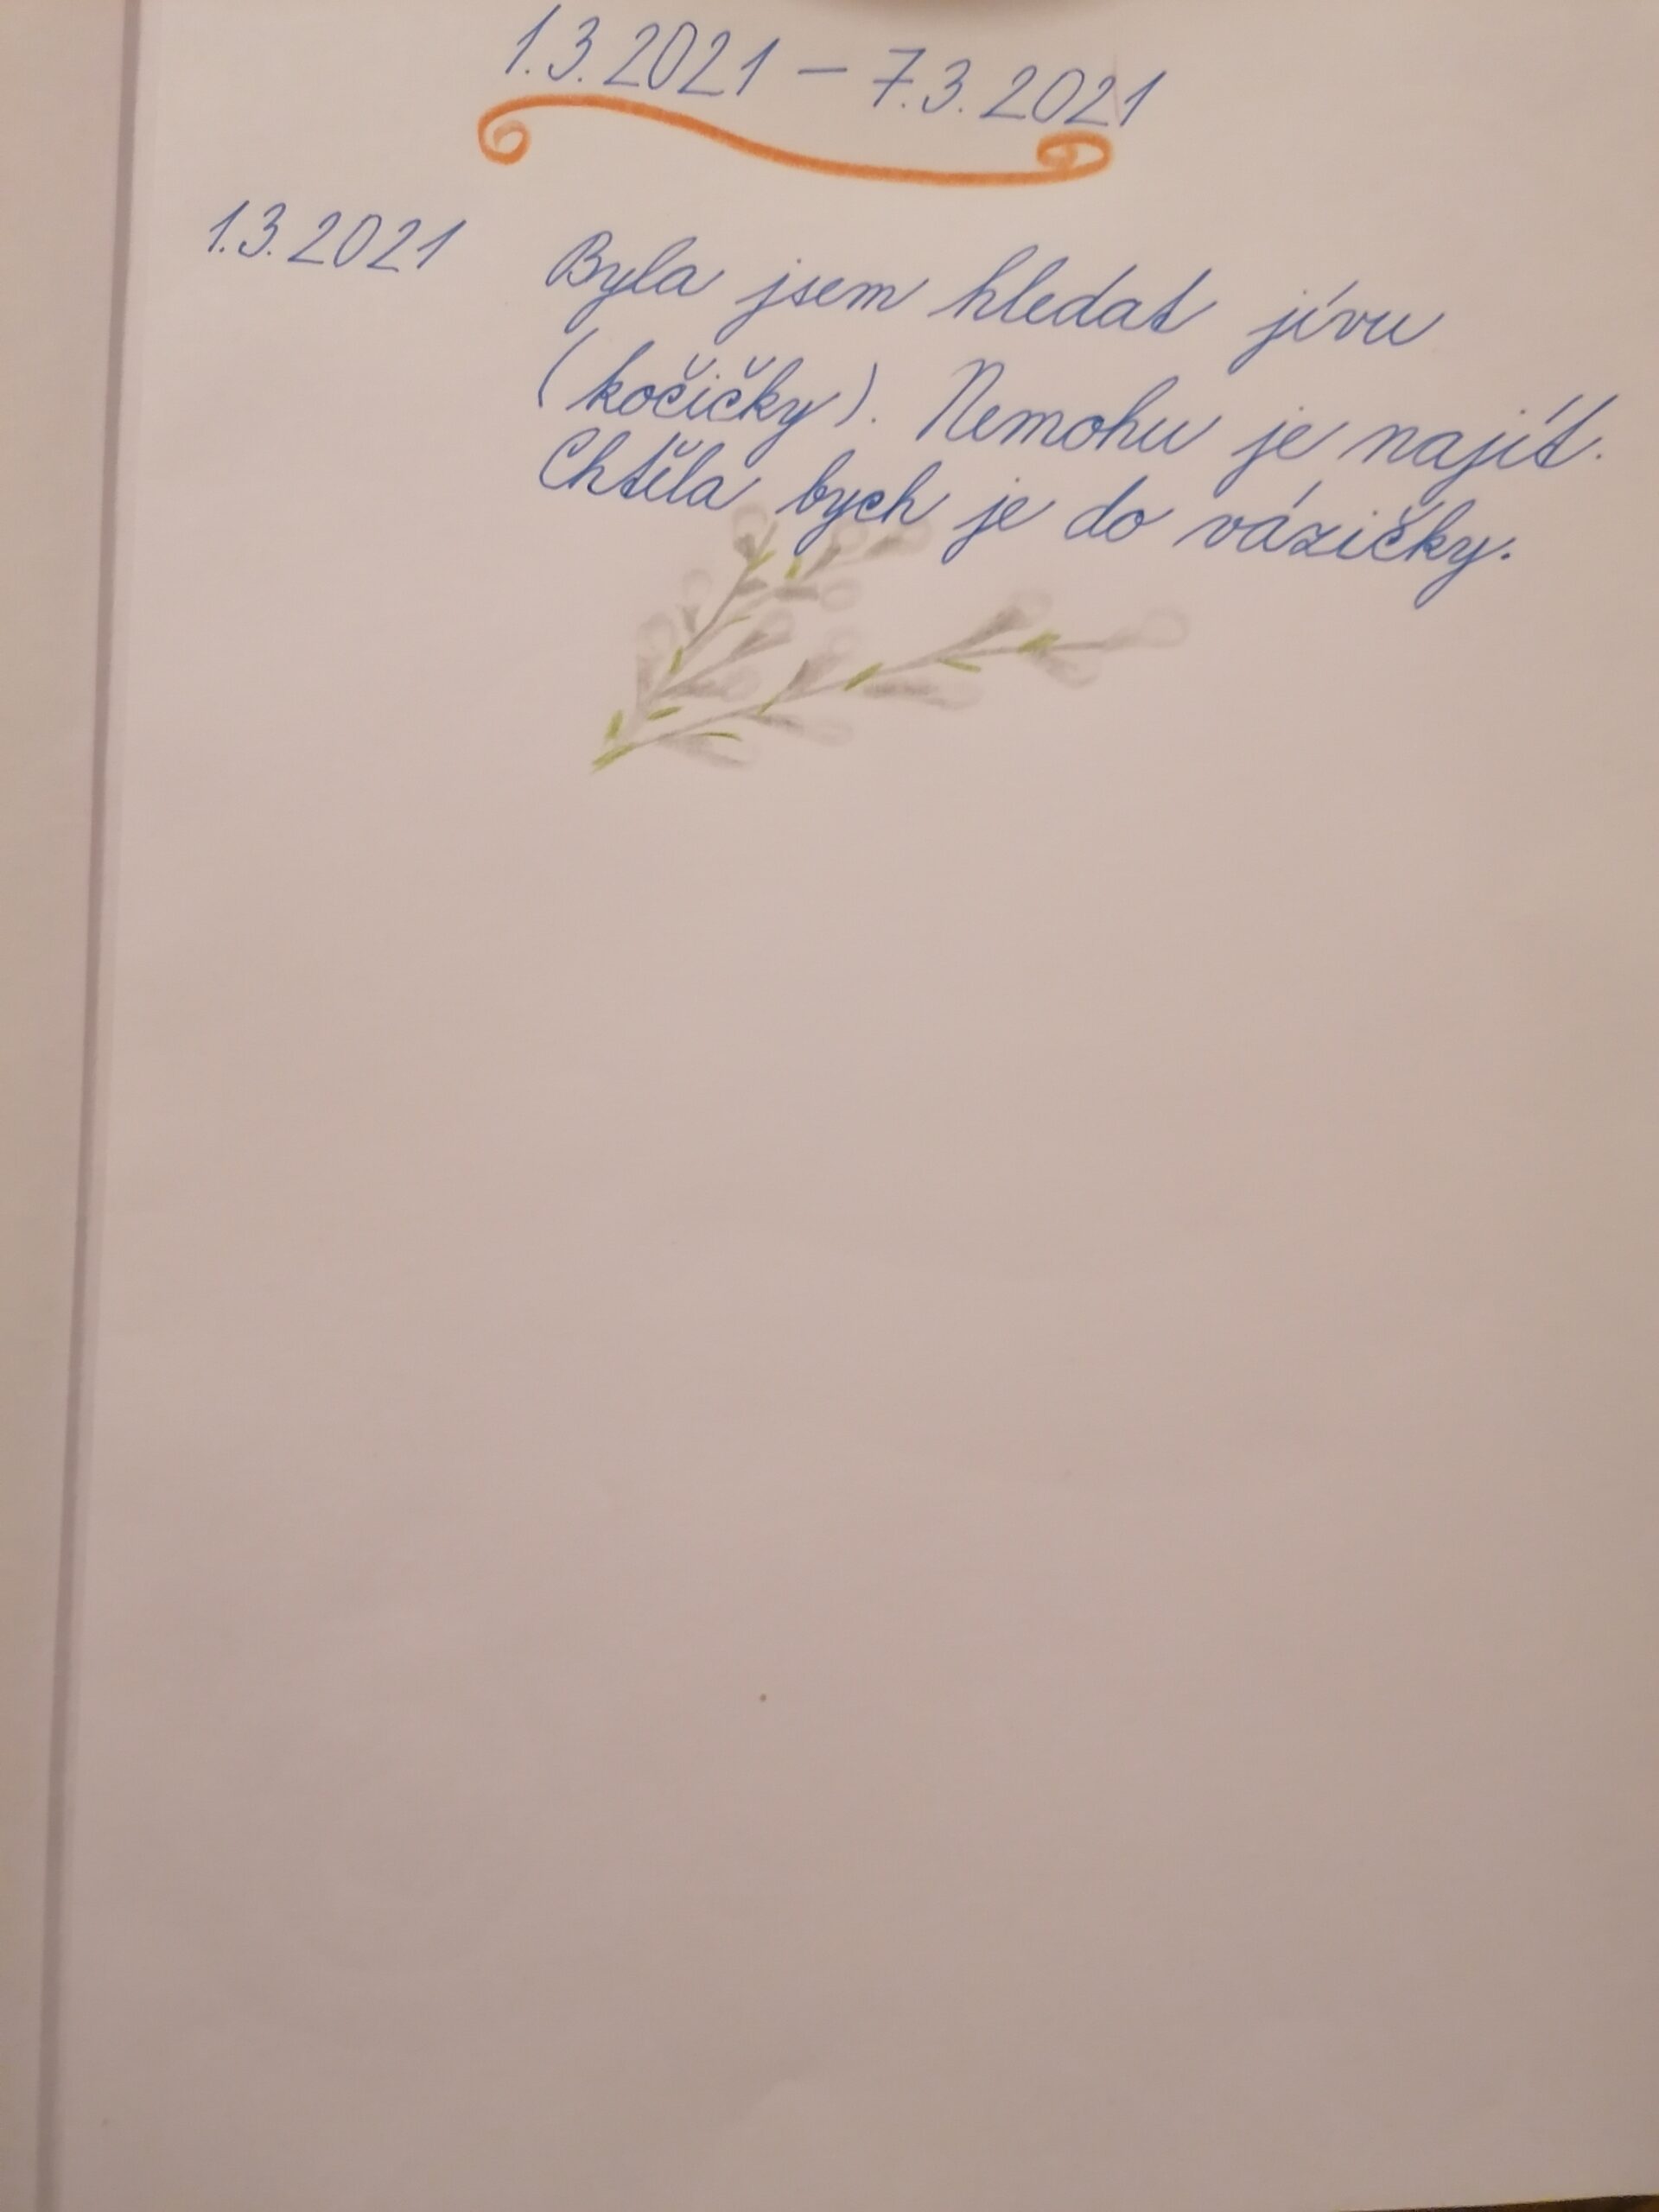 1.3.2021 – 7.3.2021
1.3.2021 Byla jsem hledat jívu
(kočičky). Nemohu je najít.
Chtěla bych je do vázičky.